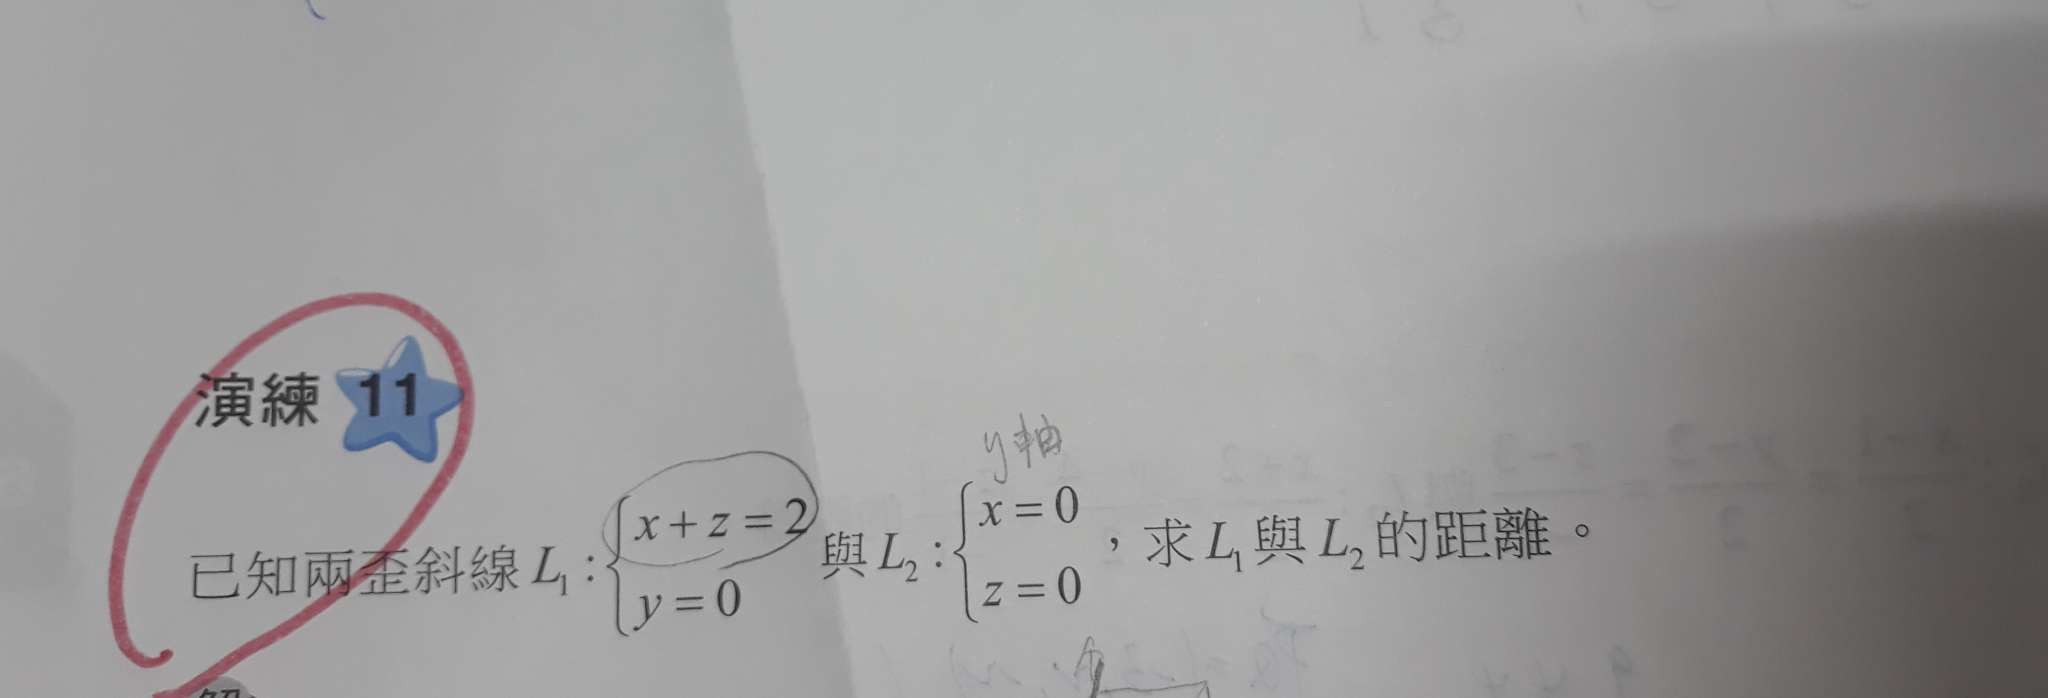 演練 11
y軸
已知兩歪斜線 L₁ : { x + z = 2, y = 0 與 L₂ : { x = 0, z = 0 ，求 L₁ 與 L₂ 的距離。